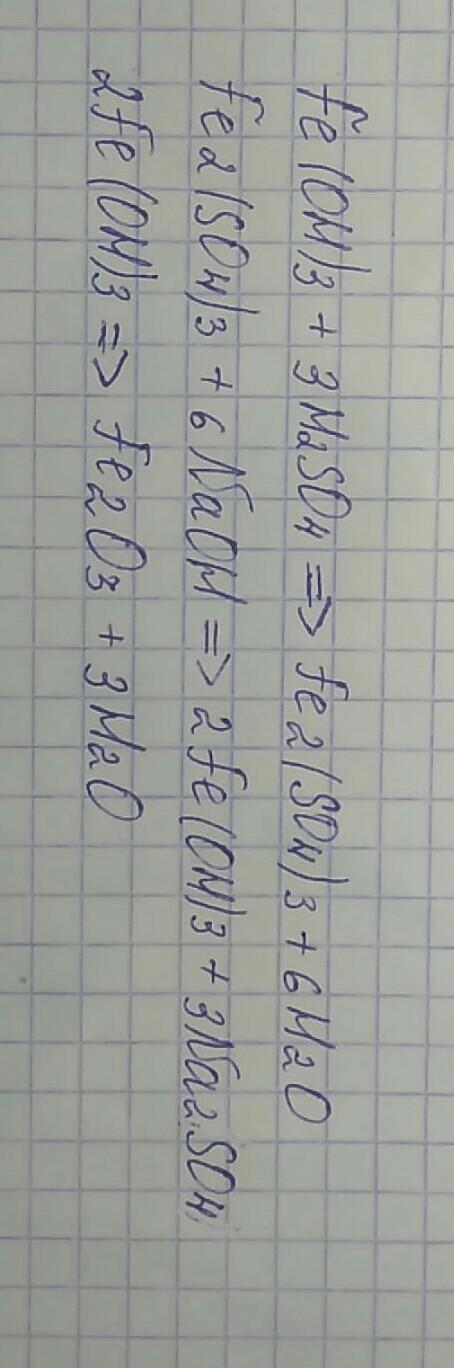 Fe(OH)3 + 3H2SO4 => Fe2(SO4)3 + 6H2O
Fe2(SO4)3 + 6NaOH => 2Fe(OH)3 + 3Na2SO4
2Fe(OH)3 => Fe2O3 + 3H2O